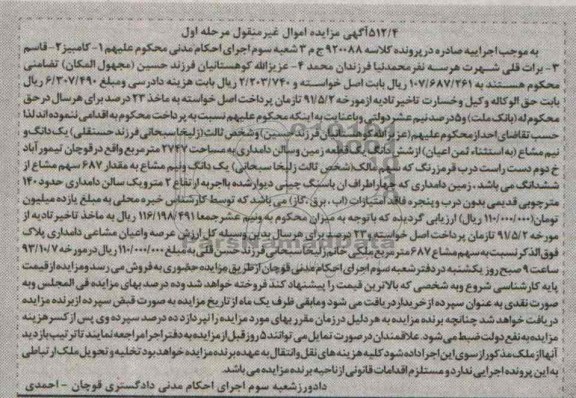 ۵۱۲/۴ آگهی مزایده اموال غیرمنقول مرحله اول
به موجب اجراییه صادره در پرونده کلاسه ۹۲۰۰۸۸ ج م ۳ شعبه سوم اجرای احکام مدنی محکوم علیهم ۱- کامبیز ۲- قاسم
۳- برات قلی شهرت هرسه نفر محمدنیا فرزندان محمد ۴- عزیزالله کوهستانیان فرزند حسین (مجهول المکان) تضامنی
محکوم هستند به ۱۰۷/۶۸۷/۲۶۱ ریال بابت اصل خواسته و ۲/۲۰۳/۷۴۰ ریال بابت هزینه دادرسی ومبلغ ۶/۳۰۷/۴۹۰ ریال
بابت حق الوکاله وکیل وخسارت تاخیر تادیه از مورخه ۹۱/۵/۲ تازمان پرداخت اصل خواسته به ماخذ ۲۳ درصد برای هرسال درحق
محکوم له (بانک ملت) و۵درصدنیم عشر دولتی وباعنایت به اینکه محکوم علیهم نسبت به پرداخت محکوم به اقدامی ننموده اند لذا
حسب تقاضای احداز محکوم علیهم (عزیزالله کوهستانیان فرزند حسین) وشخص ثالث (زلیخا سبحانی فرزند حسنقلی) یک دانگ و
نیم مشاع (به استثناء ثمن اعیان) از شش دانگ یک قطعه زمین وسالن دامداری به مساحت ۲۷۴۷ مترمربع واقع درقوچان تیمورآباد
خ دوم دست راست درب قرمزرنگ که سهم مالک (شخص ثالث زلیخا سبحانی) یک دانگ ونیم مشاع به مقدار ۶۸۷ سهم مشاع از
ششدانگ می باشد. زمین دامداری که چهار اطراف ان باسنگ چینی دیوارشده باآجر به ارتفاع ۲ مترویک سالن دامداری حدود ۱۴۰
مترچوبی قدیمی بدون درب وپنجره فاقد امتیازات (اب. برق. گاز) می باشد که توسط کارشناس خبره محلی به مبلغ یازده میلیون
تومان (۱۱۰/۰۰۰/۰۰۰ ریال) ارزیابی گردیده که باتوجه به میزان محکوم به ونیم عشرجمعا ۱۱۶/۱۹۸/۴۹۱ ریال به ماخذ تاخیر تادیه از
مورخه ۹۱/۵/۲ تازمان پرداخت اصل خواسته و ۲۳ درصد برای هرسال بدین وسیله کل ارزش عرصه واعیان مشاعی دامداری پلاک
فوق الذکر نسبت به سهم مشاع ۶۸۷ مترمربع ملکی خانم زلیخا سبحانی فرزند حسن قلی به مبلغ ۱۱۰/۰۰۰/۰۰۰ ریال درمورخه ۹۳/۱۰/۷
ساعت ۹ صبح روز یکشنبه دردفتر شعبه سوم اجرای احکام مدنی قوچان از طریق مزایده حضوری به فروش می رسد ومزایده از قیمت
پایه کارشناسی شروع وبه شخصی که بالاترین قیمت را پیشنهاد کند فروخته خواهد شد وده درصد بهای مزایده فی المجلس وبه
صورت نقدی به عنوان سپرده از خریدار دریافت می شود ومابقی ظرف یک ماه از تاریخ مزایده به صورت قبض سپرده از برنده مزایده
دریافت خواهد شد چنانچه برنده مزایده به هر دلیل در زمان مقرر بهای مورد مزایده را نپردازد ده درصد سپرده وی پس از کسر هزینه
مزایده به نفع دولت ضبط می شود. علاقمندان درصورت تمایل می توانند ۵ روز قبل از مزایده به دفتر اجرا مراجعه نمایند تا ترتیب بازدید
آنها از ملک مذکور از سوی این اجرا داده شود کلیه هزینه های نقل وانتقال به عهده برنده مزایده خواهد بود تخلیه و تحویل ملک ارتباطی
به این پرونده اجرایی ندارد و مستلزم اقدامات قانونی از ناحیه برنده مزایده می باشد.
دادورز شعبه سوم اجرای احکام مدنی دادگستری قوچان - احمدی